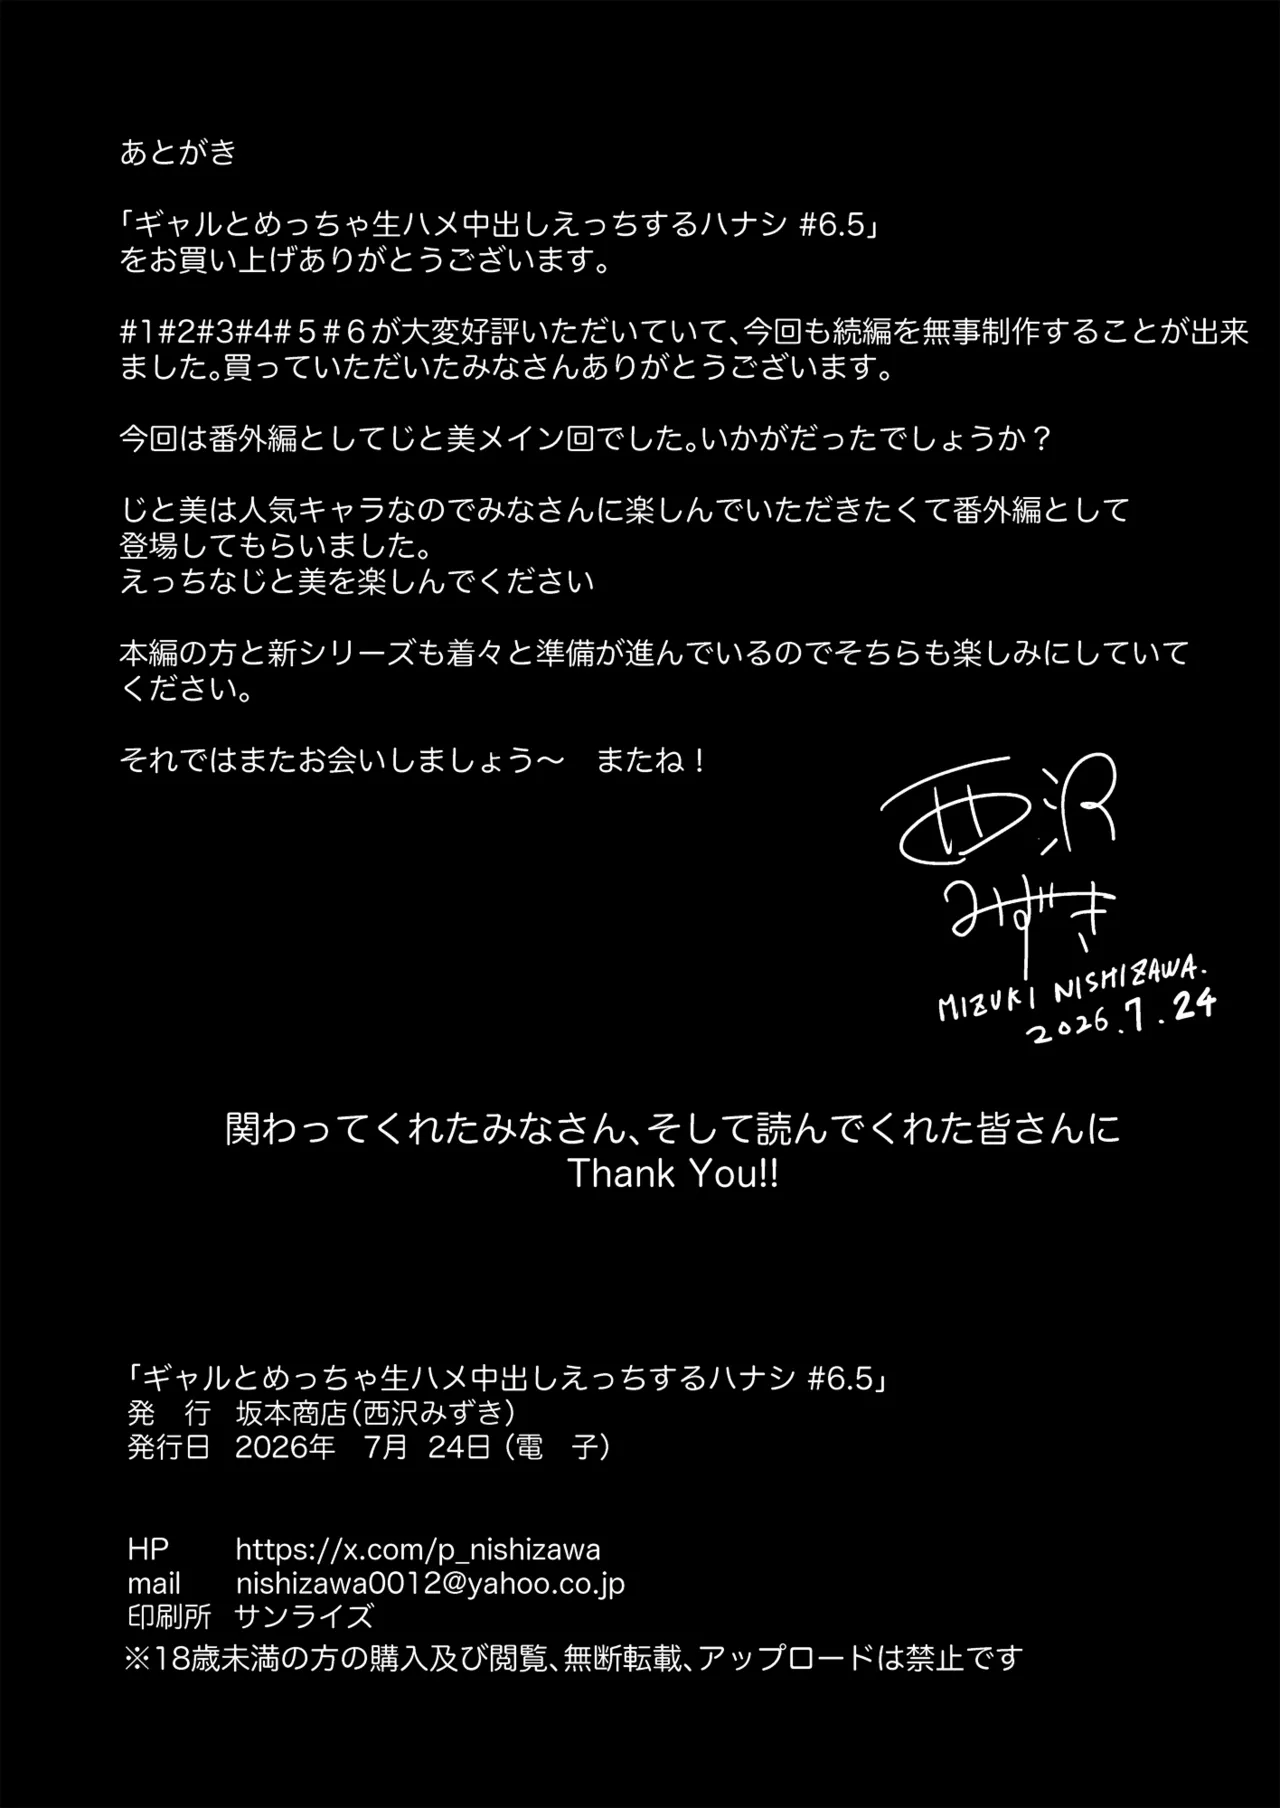 あとがき
「ギャルとめっちゃ生ハメ中出しえっちするハナシ #6.5」
をお買い上げありがとうございます。
#1#2#3#4#５#６が大変好評いただいていて、今回も続編を無事制作することが出来
ました。買っていただいたみなさんありがとうございます。
今回は番外編としてじと美メイン回でした。いかがだったでしょうか？
じと美は人気キャラなのでみなさんに楽しんでいただきたくて番外編として
登場してもらいました。
えっちなじと美を楽しんでください
本編の方と新シリーズも着々と準備が進んでいるのでそちらも楽しみにしていて
ください。
それではまたお会いしましょう〜　またね！
西沢
みずき
MIZUKI NISHIZAWA.
2026.7.24
関わってくれたみなさん、そして読んでくれた皆さんに
Thank You!!
「ギャルとめっちゃ生ハメ中出しえっちするハナシ #6.5」
発　行　坂本商店（西沢みずき）
発行日　2026年　7月　24日（電　子）
HP　https://x.com/p_nishizawa
mail　nishizawa0012@yahoo.co.jp
印刷所　サンライズ
※18歳未満の方の購入及び閲覧、無断転載、アップロードは禁止です